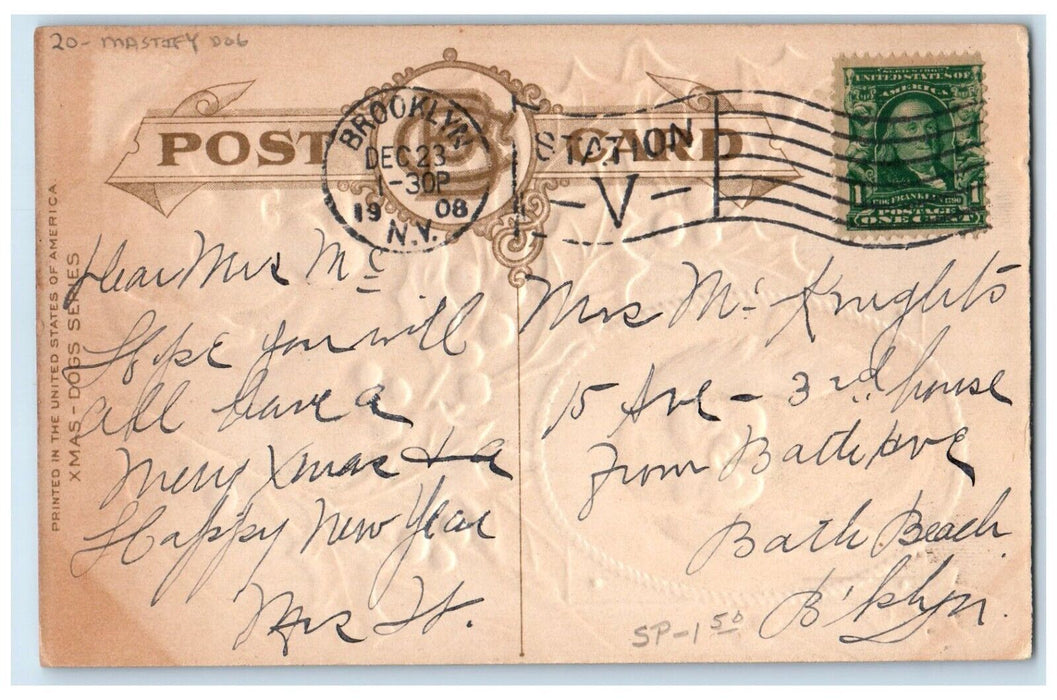 20- MASTIFF DOG
POST CARD
BROOKLYN
DEC 23
1-30P
1908
N.Y.
STATION
-V-
SERIES 1902
UNITED STATES OF
AMERICA
1 1
FRANKLIN 1790
POSTAGE
ONE CENT
PRINTED IN THE UNITED STATES OF AMERICA
XMAS-DOGS SERIES
Dear Mrs Mc
Hope you will
all have a
Merry Xmas + a
Happy New Year
Mrs H.
Mrs McKnights
15 Ave - 3rd house
from Bath Ave
Bath Beach
B'klyn.
SP-1 50